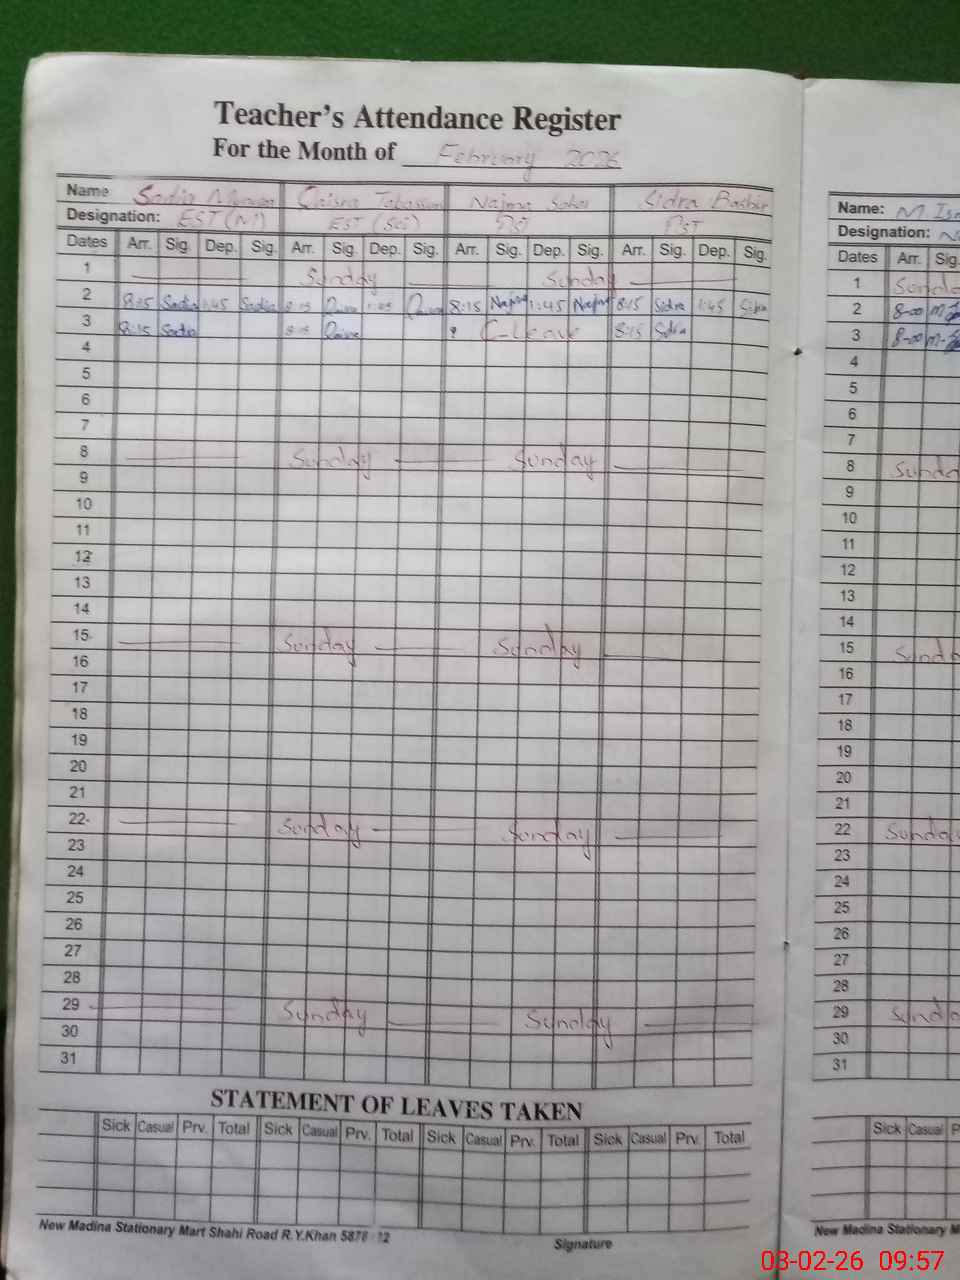 Teacher's Attendance Register
For the Month of February 2026
Name Sadia Qaisra Tabassum Najma Sidra Bashir
Designation: EST (M) EST (Sci) PST
Dates Arr. Sig. Dep. Sig. Arr. Sig. Dep. Sig. Arr. Sig. Dep. Sig. Arr. Sig. Dep. Sig.
1 Sunday Sunday
2 8:15 Sadia 1:45 Sadia 8:15 1:45 8:15 1:45 8:15 Sidra 1:45 Sidra
3 8:15 Sadia 8:15 C-Leave 8:15 Sidra
4
5
6
7
8 Sunday Sunday
9
10
11
12
13
14
15 Sunday Sunday
16
17
18
19
20
21
22 Sunday Sunday
23
24
25
26
27
28
29 Sunday Sunday
30
31
STATEMENT OF LEAVES TAKEN
Sick Casual Prv. Total Sick Casual Prv. Total Sick Casual Prv. Total Sick Casual Prv. Total
New Madina Stationary Mart Shahi Road R.Y.Khan
Signature
Name: M
Designation:
Dates Arr. Sig.
1 Sunda
2 8-00
3 8-00
4
5
6
7
8 Sunda
9
10
11
12
13
14
15 Sunda
16
17
18
19
20
21
22 Sunday
23
24
25
26
27
28
29 Sunda
30
31
Sick Casual P
New Madina Stationary M
03-02-26 09:57